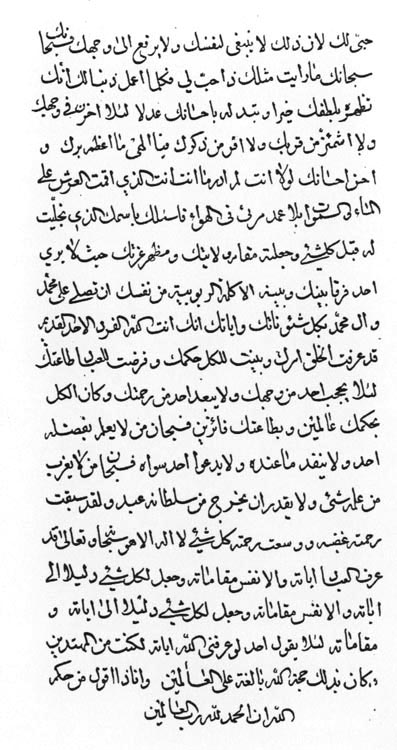 حبّى لك لان ذلك لا ينبغى لنفسك ولا يرفع الى وجهك فسبحانك
سبحانك ما رايت مثلك ذا حب لى فكلما اعمل ذنبا لك انك
تظهره بلطفك خيرا و تبدله باحسانك عدلا لئلا اخزن فى وجهك
ولا اشمئز من قربك ولا افر من ذكرك فيا الهى ما اعظم برك و
احسن احسانك لولا انت لم ادر ما انت انت الذي اقمت العرش على
الماء و السموات بلا عمد مرئى فى الهواء فاسئلك باسمك الذي تجليت
له قبل كلشئ و جعلته مقام ولايتك و مظهر عزتك حيث لا يرى
احد فرقا بينك و بينه الا كلمة الربوبية من نفسك ان تصلى على محمد
و ال محمد بكل شئوناتك و اياتك انك انت الله الفرد الاحد القديم
قد عرفت الخلق امرك و بينت للكل حكمك و فرضت للعباد طاعتك
لئلا يحجب احد من وجهك ولا يبعد احد من رحمتك و كان الكل
بحكمك عالمين و بطاعتك فائزين فسبحان من لا يعلم بفضله
احد ولا ينفد ما عنده ولا يدعوا احد سواه فسبحان من لا يعزب
من علمه شئ ولا يقدر ان يخرج من سلطانه عبد و لقد سبقت
رحمته غضبه و وسعت رحمته كل شئ لا اله الا هو سبحانه و تعالى قد
عرف العباد اياته و الانفس مقاماته و جعل لكل شئ دليلا الى
اياته و الانفس مقاماته و جعل لكل شئ دليلا الى اياته و
مقاماته لئلا يقول احد لو عرفنى الله اياته لكنت من المهتدين
و كان بذلك حجة الله بالغة على العالمين و انا ذا اقول من حكم
الله ان الحمد لله رب العالمين